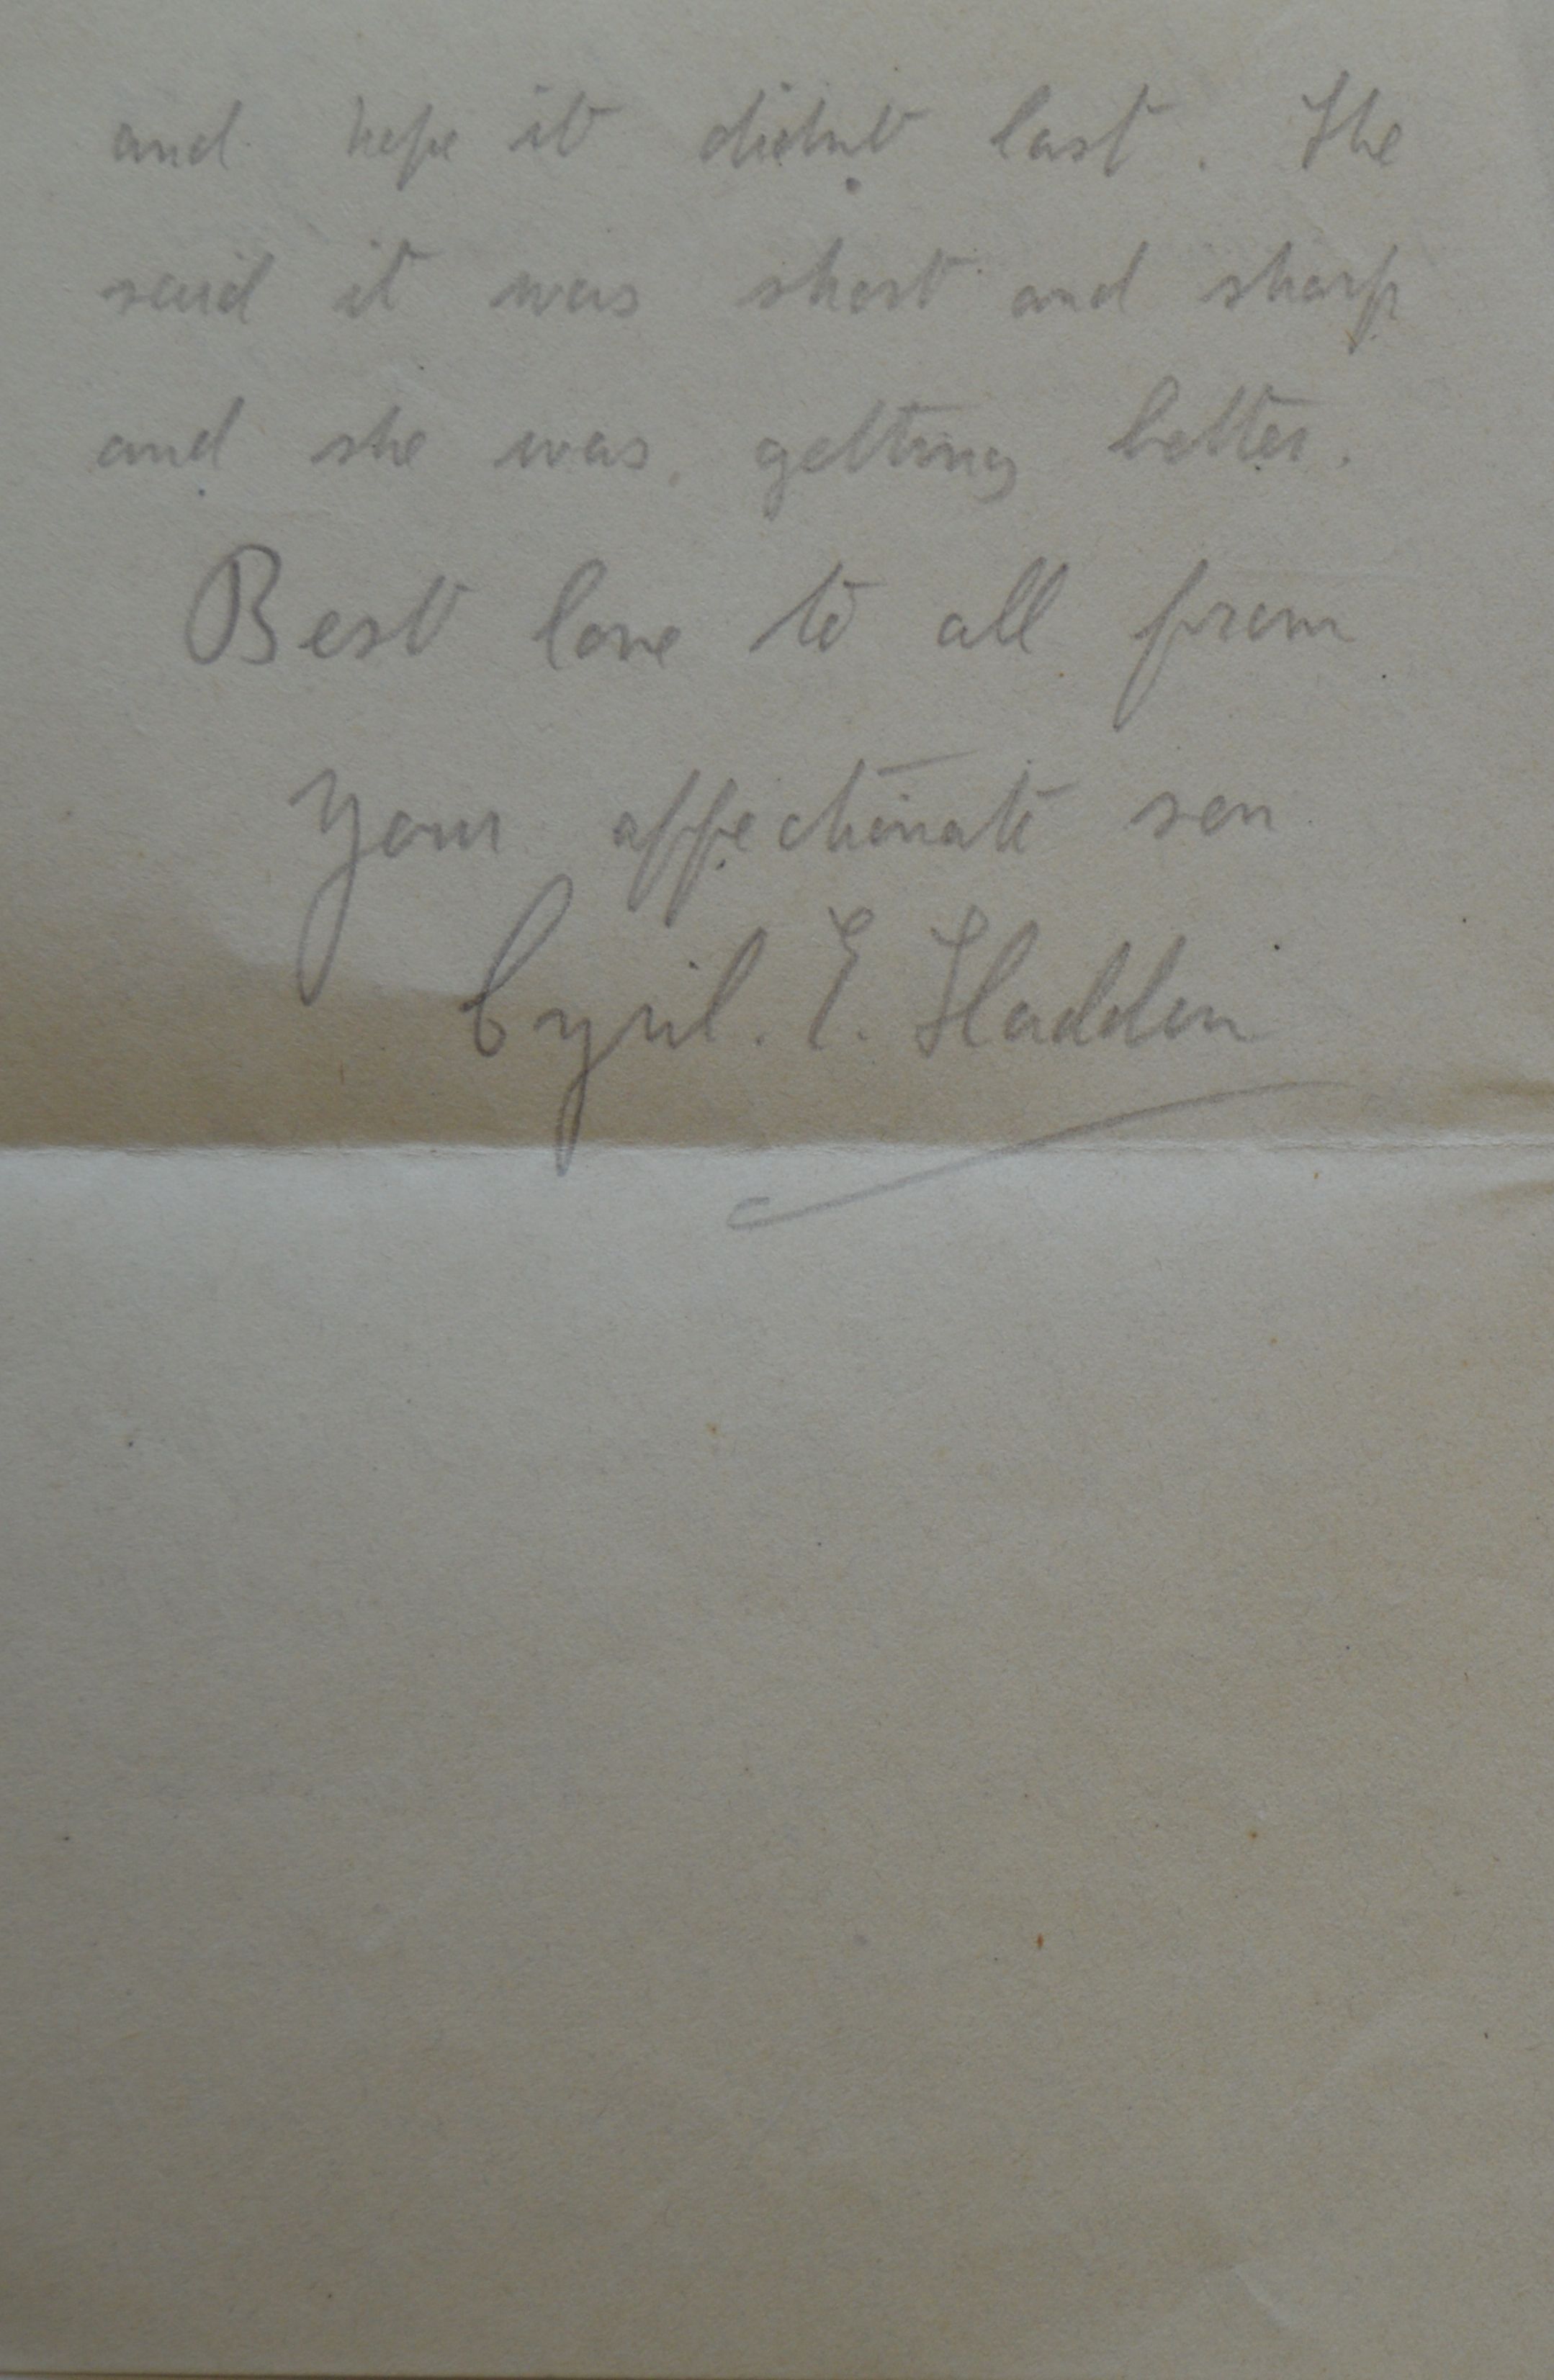 and hope it didnt last. She
said it was short and sharp
and she was, getting better.
Best love to all from
Your affectionate son
Cyril. E. Hadden